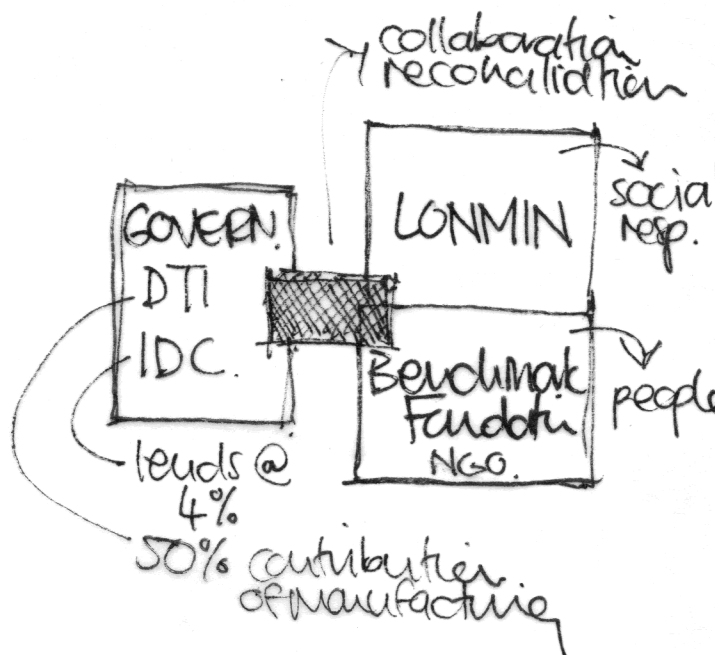 collaboration
reconcilidtion
GOVERN.
DTI
IDC.
LONMIN
social
resp.
Benchmark
Foundatn
NGO.
people
lends @
4%
50% contribution
of manufacturing